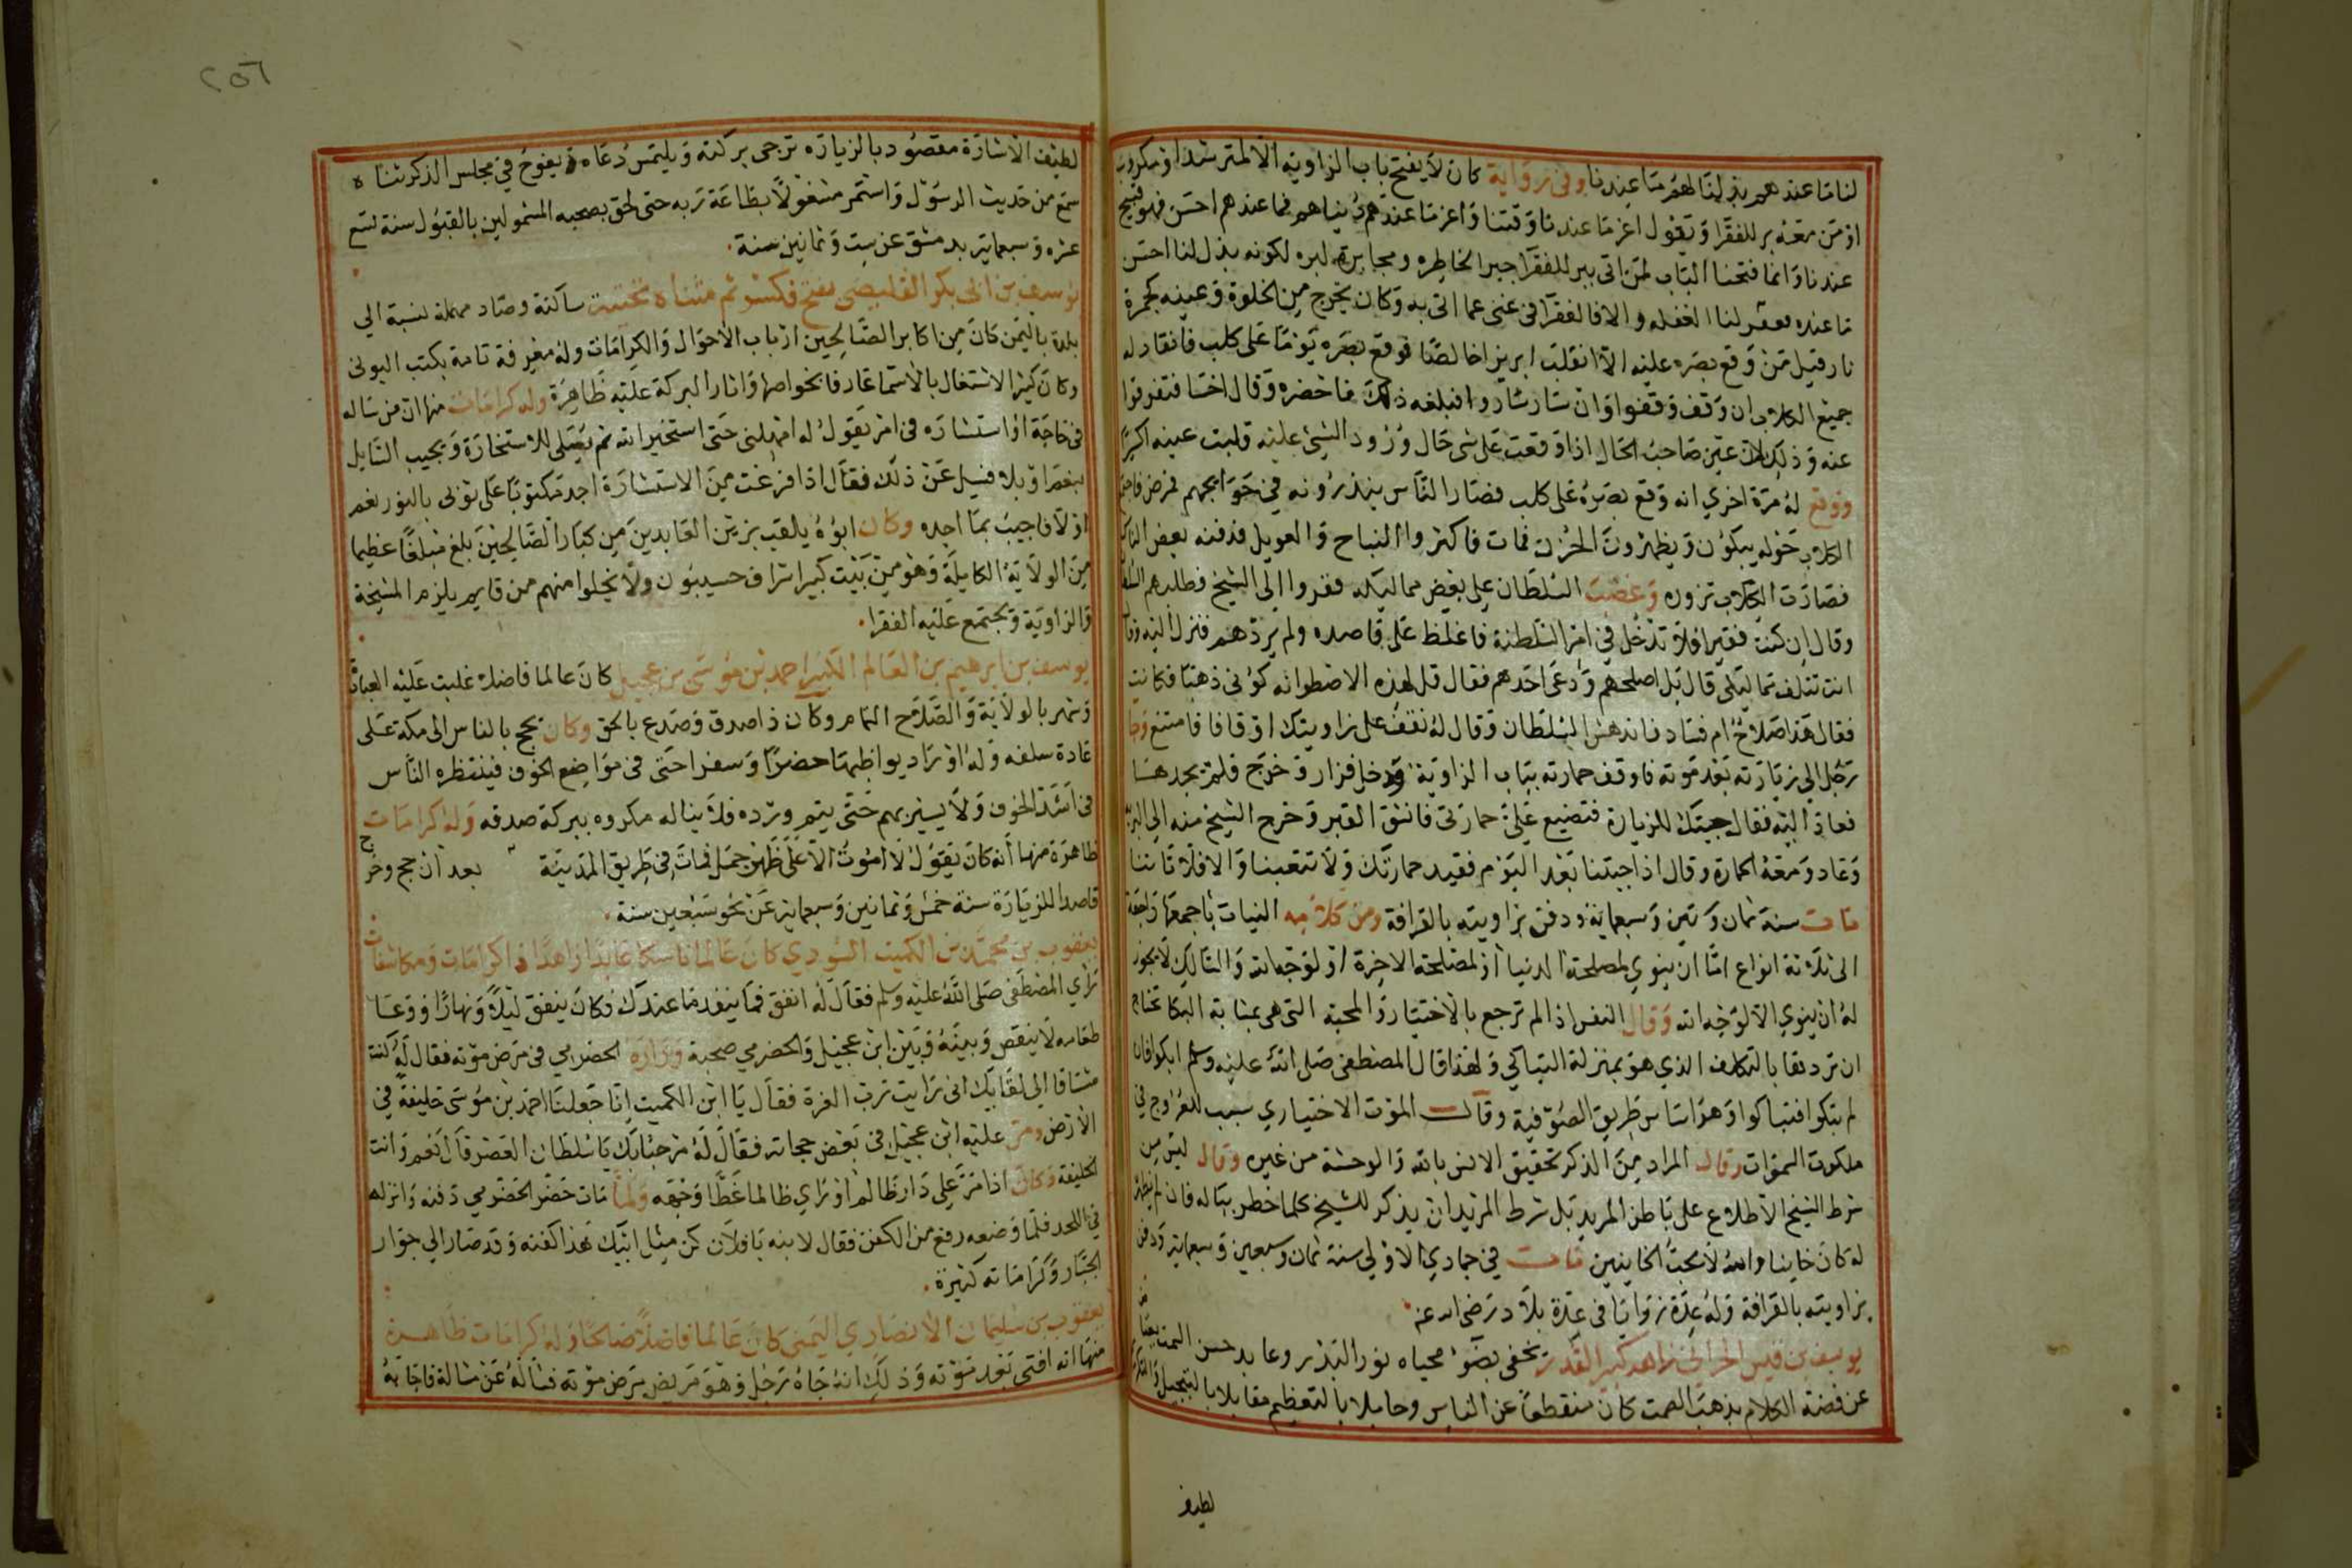 لنا ما عندهم بذلنا لهم ما عندنا وفي رواية كان لا يفتح باب الزاوية الا لمسترشد او مكروب
او من معه بر للفقرا ويقول اعز ما عندنا وقتنا واعز ما عندهم دنياهم فما عندهم احسن فهو قبيح
عندنا وانما فتحنا الباب لمن اتى ببر للفقرا جبرا لخاطره ومجابرة لبره لكونه بذل لنا احسن
ما عنده لنا الغفله والا فالفقرا في غنى عما اتى به وكان يخرج من الخلوة وعينه كجمرة
نار فقيل من وقع بصره عليه الا انقلب ابريزا خالصا فوقع بصره يوما على كلب فانقاد له
جميع الكلاب ان وقف وقفوا وان سار ساروا فبلغه ذلك فاحضره وقال اخسا فتفرقوا
عنه وذلك لان عين صاحب الحال اذا وقعت على شي حال ورود الشي عليه قلبت عينه اكبرا
ووقع له مرة اخري انه وقع بصره على كلب فصار الناس ينذرونه في حوايجهم فمرض فاجتمع
الكلاب حوله يبكون ويظهرون الحزن فمات فاكثروا النباح والعويل فدفنه بعض الناس
فصارت الكلاب تزوره وغضب السلطان على بعض مماليكه ففروا الي الشيخ فطلبهم السلطان
وقال ان كنت فقيرا فلا تدخل في امر السلطنة فاغلظ على قاصده ولم يردهم فنزل اليه وقال
انت تتلف مماليكي قال بل اصلحهم ودعى احدهم فقال قل لهذه الاصطوانه كوني ذهبا فكانت
فقال هذا صلاح ام فساد فاندهش السلطان وقال له نقف على زاويتك اوقافا فامتنع وجا
رجل الي زيارته بعد موته فاوقف حمارته بباب الزاوية ودخل فزار وخرج فلم يجدها
فعاد اليه فقال جيتك للزيارة فتضيع على حمارتى فانشق القبر وخرج الشيخ منه الى البر
وعاد ومعه الحمارة وقال اذا جيتنا بعد اليوم فقيد حمارتك ولا تتعبنا والا فلا تاتنا
مات سنة ثمان وستين وسبعماية ودفن بزاويته بالقرافة ومن كلامه النيات باجمعها راجعة
الى ثلاثة انواع اما ان ينوي لمصلحة الدنيا او لمصلحة الاخرة او لوجه الله والسالك لا يجوز
له ان ينوي الا لوجه الله وقال النفس اذا لم ترجع بالاختيار والمحبة التي هي بمثابة البكا تحتاج
ان تردها بالتكلف الذي هو بمنزلة التباكي ولهذا قال المصطفى صلى الله عليه وسلم ابكوا فان
لم تبكوا فتباكوا وهو اساس طريق الصوفية وقال الموت الاختياري سبب للعروج في
ملكوت السموات وقال المراد من الذكر تحقيق الانس بالله والوحشة من غيره وقال ليس من
شرط الشيخ الاطلاع على باطن المريد بل شرط المريد ان يذكر للشيخ كلما خطر بباله فان لم يظهر
له كان خاينا والله لا يحب الخاينين مات في جمادي الاولي سنة ثمان وسبعين وسبعماية ودفن
بزاويته بالقرافة وله عدة زوايا في عدة بلاد رضى الله عنه
يوسف بن قيس الحراني زاهد كبير القدر تخفى بضوء محياه نور البدر وعابد حسن السمت
عن فضة الكلام بذهب الصمت كان منقطعا عن الناس وحاملا بالتعظيم مقابلا بالتبجيل
لطيف
٢٥٦
لطيف الاشارة مقصود بالزيارة ترجى بركته ويلتمس دعاه ويفوح في مجلس الذكر ثناه
سمع من حديث الرسول واستمر مشغولا بطاعة ربه حتى لحق بصحبه المشمولين بالقبول سنة تسع
عشره وسبعماية بدمشق عن ست وثمانين سنة
يوسف بن ابي بكر القليصى بفتح فكسر ثم مثناة تحتية ساكنة وصاد مهملة نسبة الي
بلدة باليمن كان من اكابر الصالحين ارباب الاحوال والكرامات وله معرفة تامة بكتب البوني
وكان كثير الاشتغال بالاسما عارفا بخواصها واثار البركة عليه ظاهرة وله كرامات منها ان من ساله
في حاجة او استشاره في امر يقول له امهلني حتى استخير الله ثم يصلى للاستخارة ويجيب السايل
بنعم او بلا فسيل عن ذلك فقال اذا فرغت من الاستشارة اجد مكتوبا على ثوبى بالنور نعم
او لا فاجيب بما اجده وكان ابوه يلقب بزين العابدين من كبار الصالحين بلغ مبلغا عظيما
من الولاية الكاملة وهو من بيت كبير اشراف حسيبون ولا يخلوا منهم من قايم يلزم المشيخة
والزاوية ويجتمع عليه الفقرا
يوسف بن ابرهيم بن العالم الكبير احمد بن موسى بن عجيل كان عالما فاضلا غلبت عليه العبادة
وشهر بالولاية والصلاح التام وكان ذا صدق وصدع بالحق وكان يحج بالناس الى مكة على
عادة سلفه وله اوراد يواظبها حضرا وسفرا حتى في مواضع الخوف فينتظره الناس
في اشد الخوف ولا يسير بهم حتى يتم ورده فلا يناله مكروه ببركة صدقه وله كرامات
ظاهرة منها انه كان يقول لا اموت الا على ظهر جمل فمات في طريق المدينة بعد ان حج وخرج
قاصدا للزيارة سنة خمس وثمانين وسبعماية عن نحو سبعين سنة
يعقوب بن محمد بن الكميت السودي كان عالما ناسكا عابدا زاهدا ذا كرامات ومكاشفات
راي المصطفى صلى الله عليه وسلم فقال له انفق فما ينفد ما عندك فكان ينفق ليلا ونهارا ووعا
طعامه لا ينقص وبينه وبين ابن عجيل والحضرمي صحبة وزاره الحضرمي في مرض موته فقال له كنت
مشتاقا الى لقايك انى رايت رب العزة فقال يا ابن الكميت انا جعلنا احمد بن موسى خليفة في
الارض ومر عليه ابن عجيل في بعض حجاته فقال له مرحبا بك يا سلطان العصر قال نعم وانت
الخليفة وكان اذا مر على دار ظالم او راي ظالما غطا وجهه ولما مات حضر الحضرمي دفنه وانزله
في اللحد فلما وضعه رفع من الكفن فقال لابنه يا فلان كن مثل ابيك هذا كفنه وقد صار الي جوار
الجبار وكراماته كثيرة
يعقوب بن سليمان الانصاري اليمنى كان عالما فاضلا صالحا وله كرامات ظاهرة
منها انه افتى بعد موته وذلك انه جاه رجل وهو مريض مرض موته فساله عن مسالة فاجابه